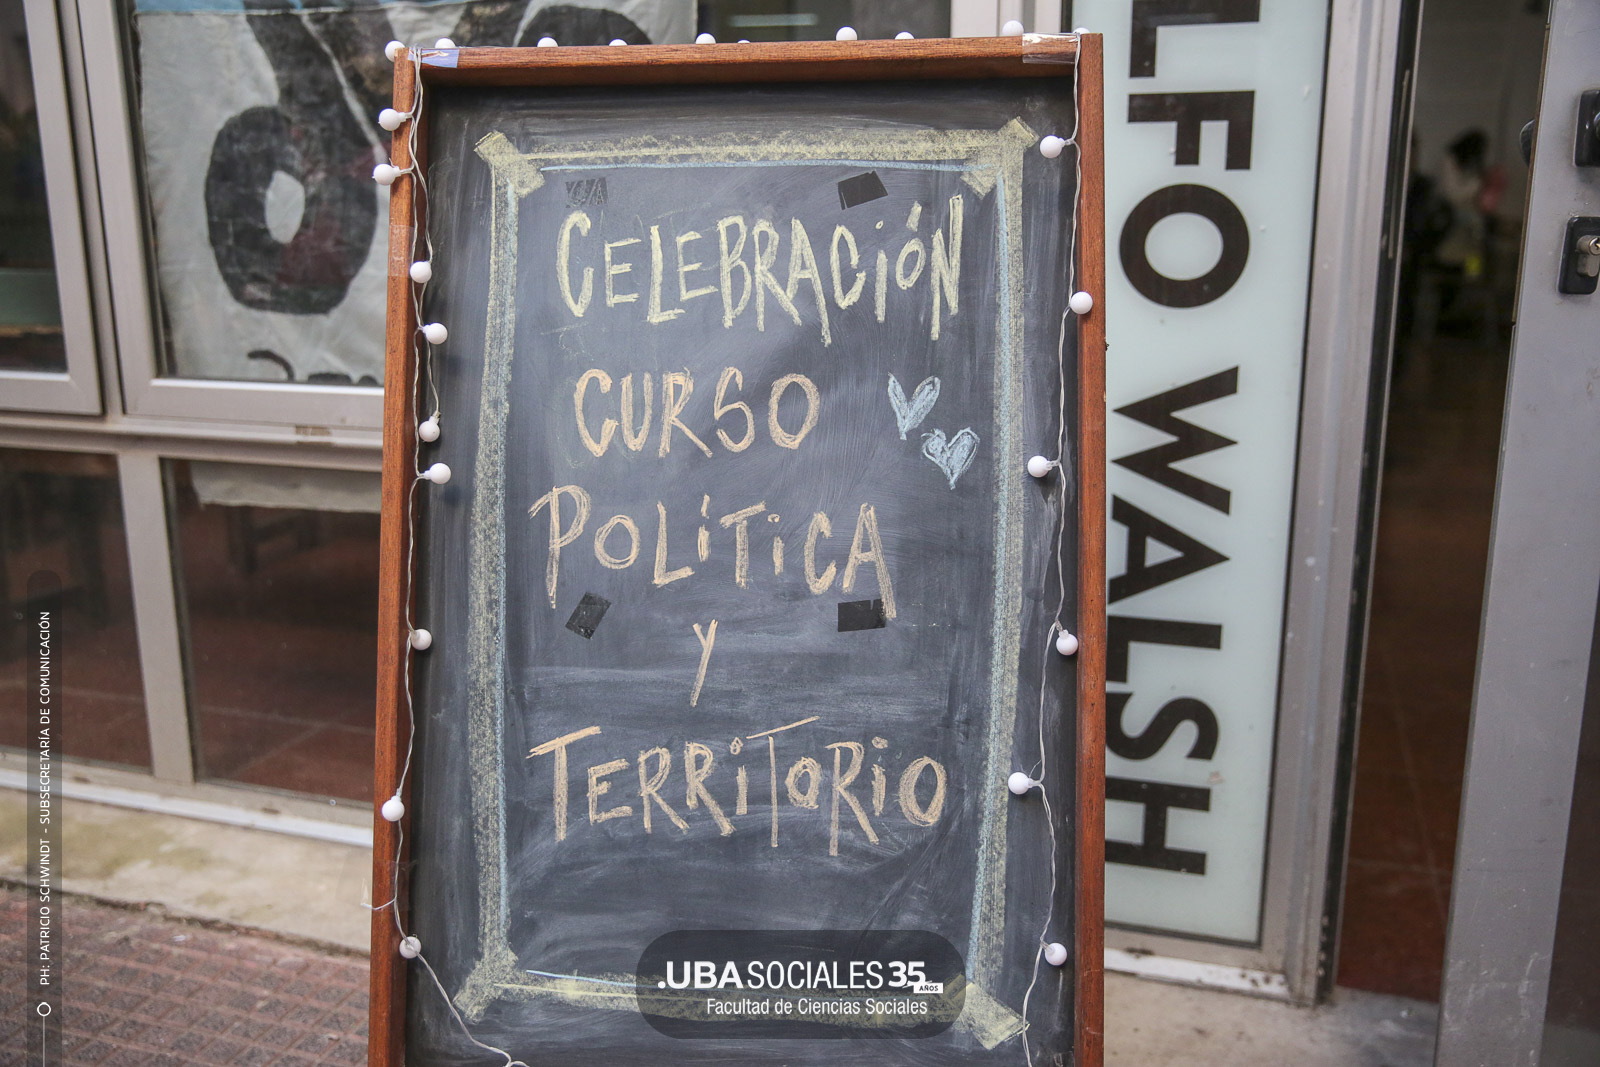 CELEBRACIÓN
CURSO
POLÍTICA
Y
TERRITORIO
LFO WALSH
.UBASOCIALES35 AÑOS
Facultad de Ciencias Sociales
PH: PATRICIO SCHWINDT - SUBSECRETARÍA DE COMUNICACIÓN